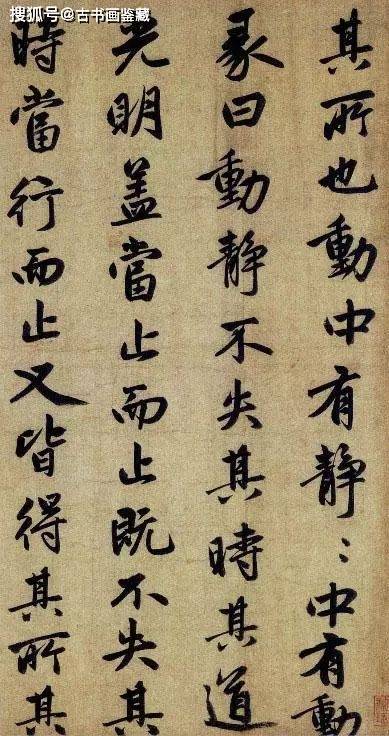 搜狐号@古书画鉴藏
其所也動中有静:中有動
彖曰動静不失其時其道
光明盖當止而止既不失其
時當行而止又皆得其所其